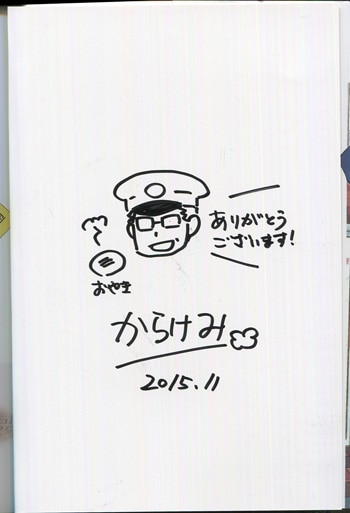 ありがとう
ございます!
おやき
からけみ
2015.11